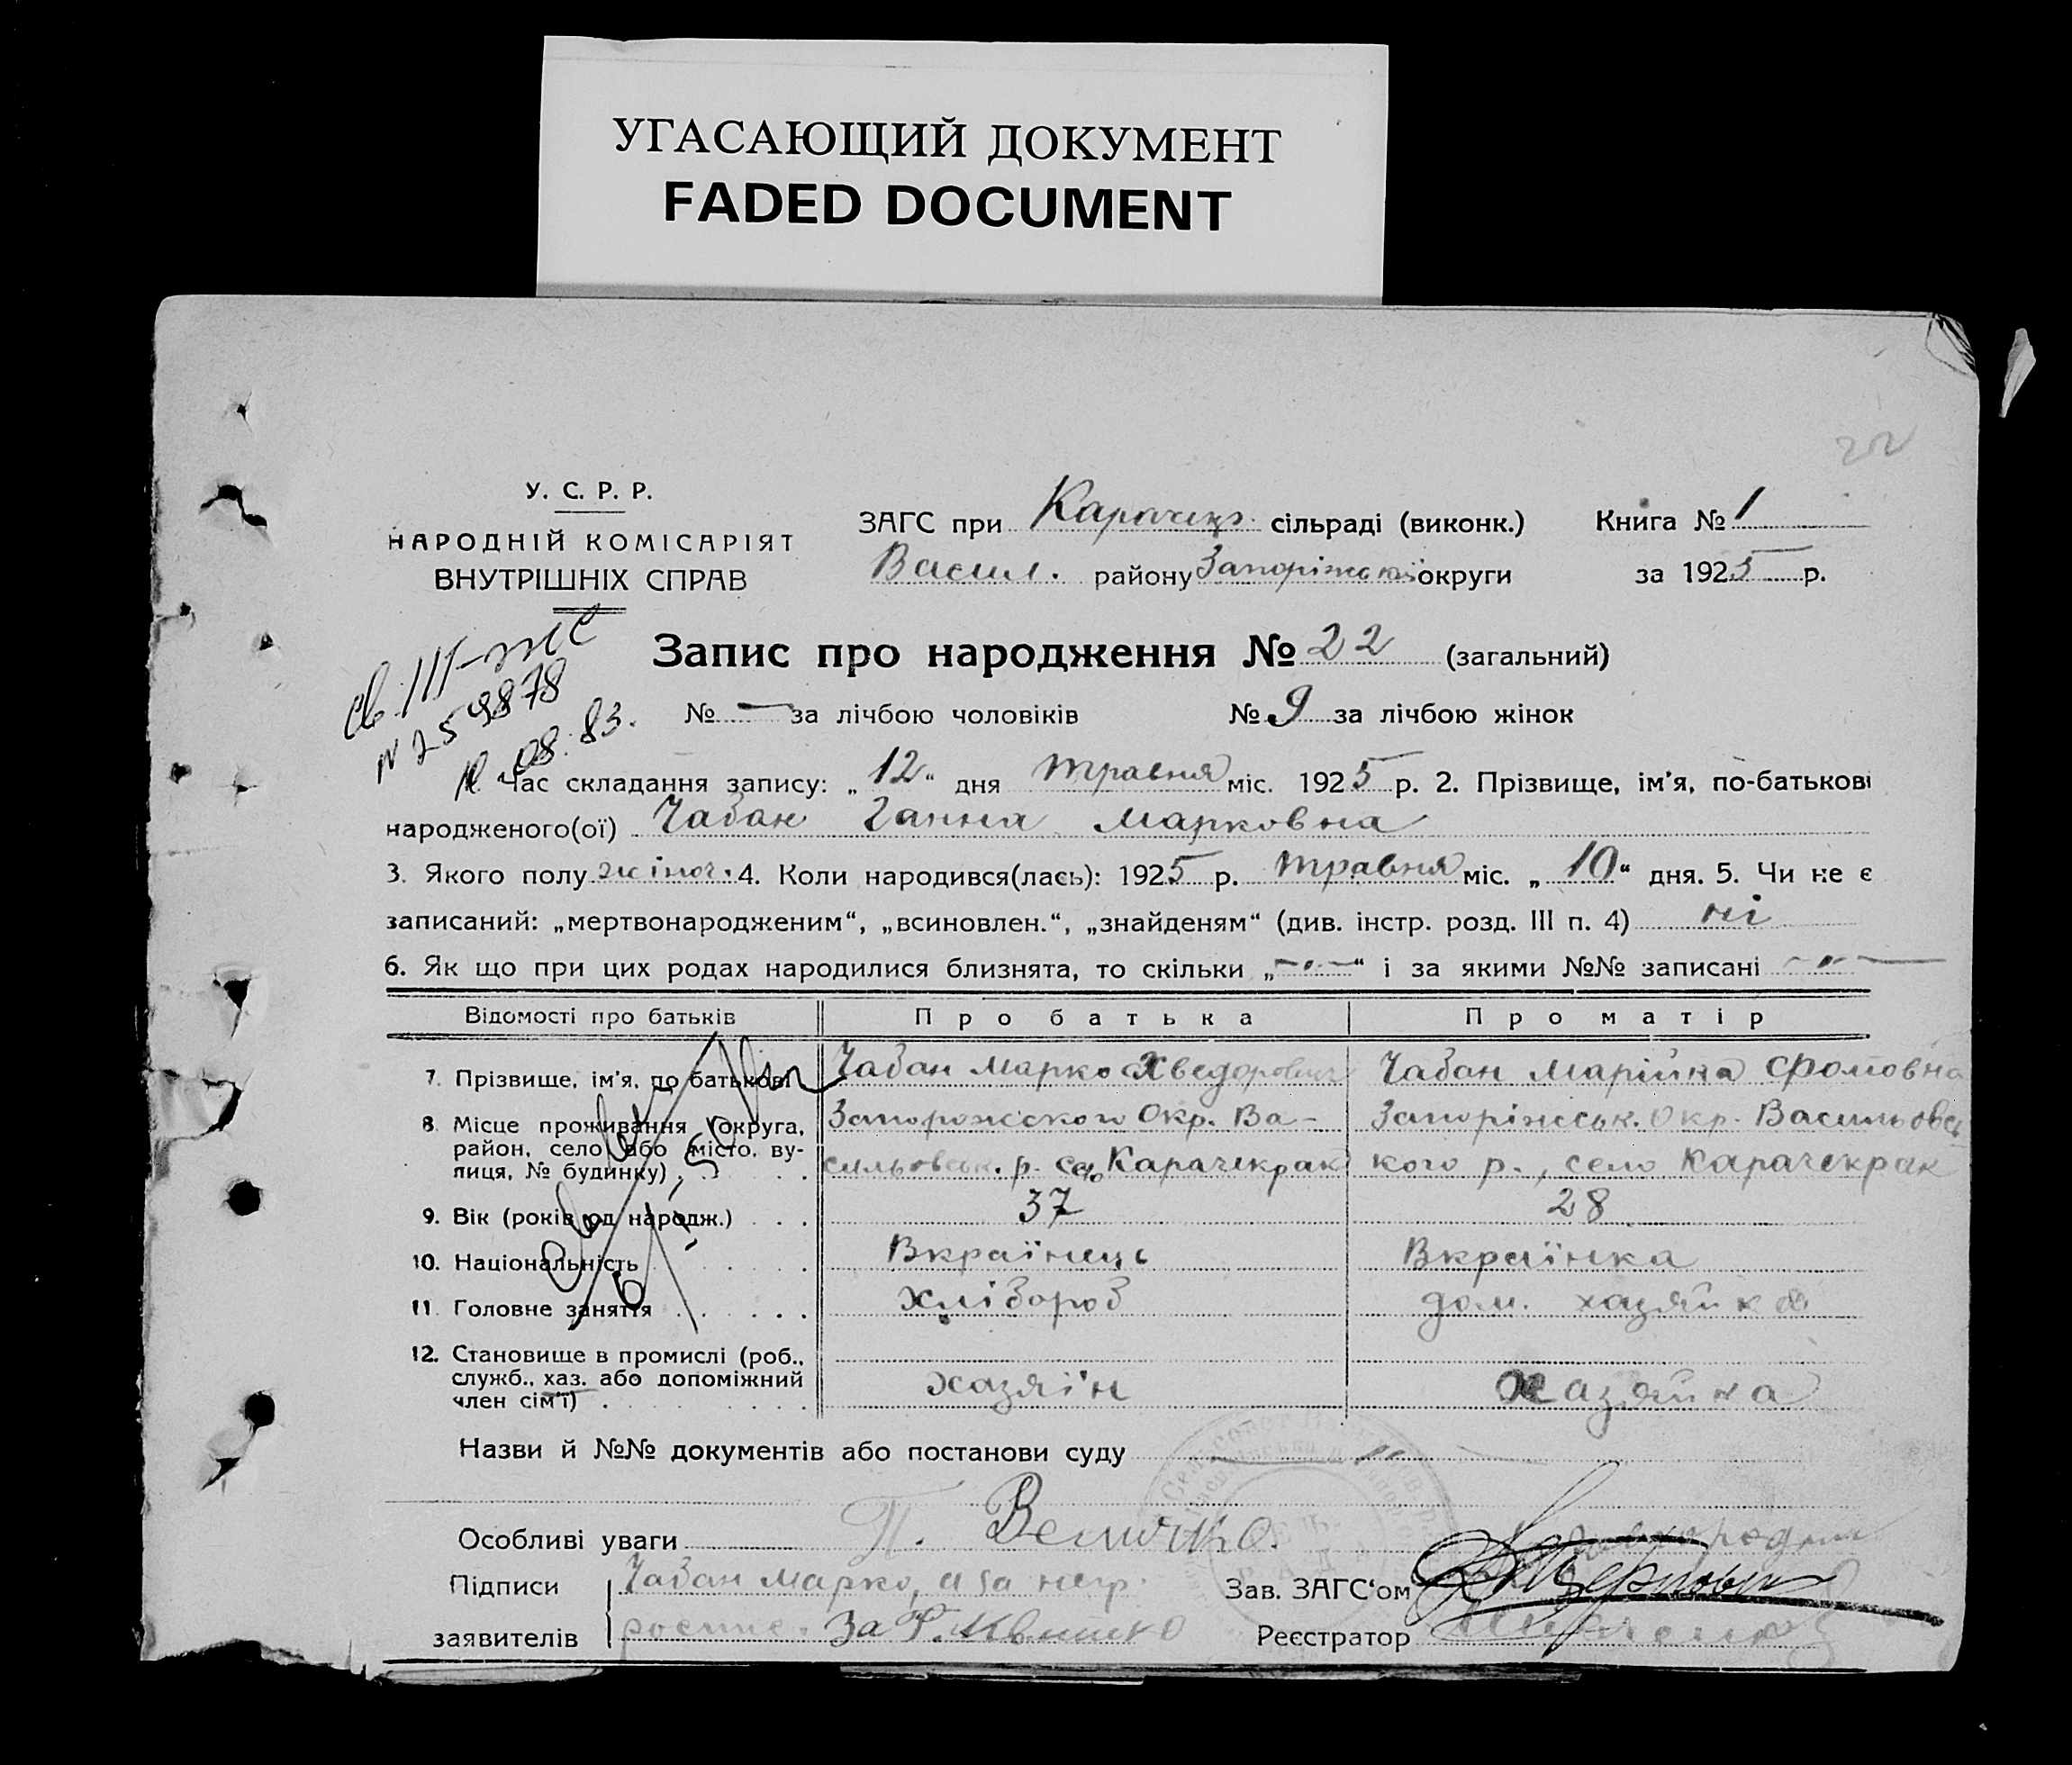 УГАСАЮЩИЙ ДОКУМЕНТ
FADED DOCUMENT
22
У. С. Р. Р.
НАРОДНІЙ КОМІСАРІЯТ
ВНУТРІШНІХ СПРАВ
ЗАГС при Карачекр. сільраді (виконк.) Книга № 1
Васил. району Запоріжської округи за 1925 р.
Запис про народження № 22 (загальний)
№ — за лічбою чоловіків № 9 за лічбою жінок
св. III-жс
№ 259878
08.83.
Час складання запису: „12“ дня травня міс. 1925 р. 2. Прізвище, ім'я, по-батькові
народженого(ої) Чабан Ганна Марковна
3. Якого полу жіноч. 4. Коли народився(лась): 1925 р. травня міс. „10“ дня. 5. Чи не є
записаний: „мертвонародженим“, „всиновлен.“, „знайденям“ (див. інстр. розд. III п. 4) ні
6. Як що при цих родах народилися близнята, то скільки „-"-“ і за якими №№ записані -"-
Відомості про батьків Про батька Про матір
7. Прізвище, ім'я, по батькові Чабан Марко Хведорович Чабан Марійна Фомовна
8. Місце проживання (округа, район, село або місто, вулиця, № будинку) Запорожского Окр. Ва- Запоріжськ. Окр. Васильовсь
сильовськ. р. село Карачекрак кого р., село Карачекрак
9. Вік (років од народж.) 37 28
10. Національність Вкраїнець Вкраїнка
11. Головне заняття хлібороб дом. хазяйка
12. Становище в промислі (роб., служб., хаз. або допоміжний член сім'ї) хазяїн хазяйка
Назви й №№ документів або постанови суду "
Особливі уваги П. Величко.
Підписи Чабан Марко, а за негр. Зав. ЗАГС'ом
заявителів роспис. За Ф. Квитко Реєстратор